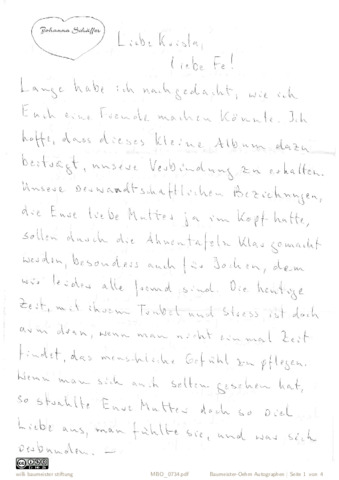 Johanna Schäffer
Liebe Krista,
liebe Fe!
Lange habe ich nachgedacht, wie ich
Euch eine Freude machen könnte. Ich
hoffe, dass dieses kleine Album dazu
beiträgt, unsere Verbindung zu erhalten.
Unsere verwandtschaftlichen Beziehungen,
die Eure liebe Mutter ja im Kopf hatte,
sollen durch die Ahnentafeln klar gemacht
werden, besonders auch für Jochen, dem
wir leider alle fremd sind. Die heutige
Zeit, mit ihrem Trubel und Stress ist doch
arm dran, wenn man nicht einmal Zeit
findet, das menschliche Gefühl zu pflegen.
Wenn man sich auch selten gesehen hat,
so strahlte Eure Mutter doch so viel
Liebe aus, man fühlte sie, und war sich
verbunden. —
willi baumeister stiftung
MBO_0734.pdf
Baumeister-Oehm Autographen : Seite 1 von 4